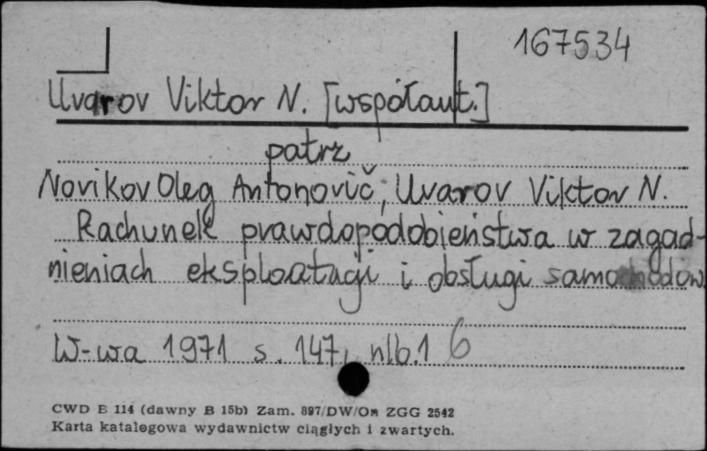 167534
Uvarov Viktor N. [współaut.]
patrz
Novikov Oleg Antonovič, Uvarov Viktor N.
Rachunek prawdopodobieństwa w zagad-
nieniach eksploatacji i obsługi samochodów
W-wa 1971 s. 147, nlb.1 6
CWD E 114 (dawny B 15b) Zam. 897/DW/Om ZGG 2542
Karta katalogowa wydawnictw ciągłych i zwartych.